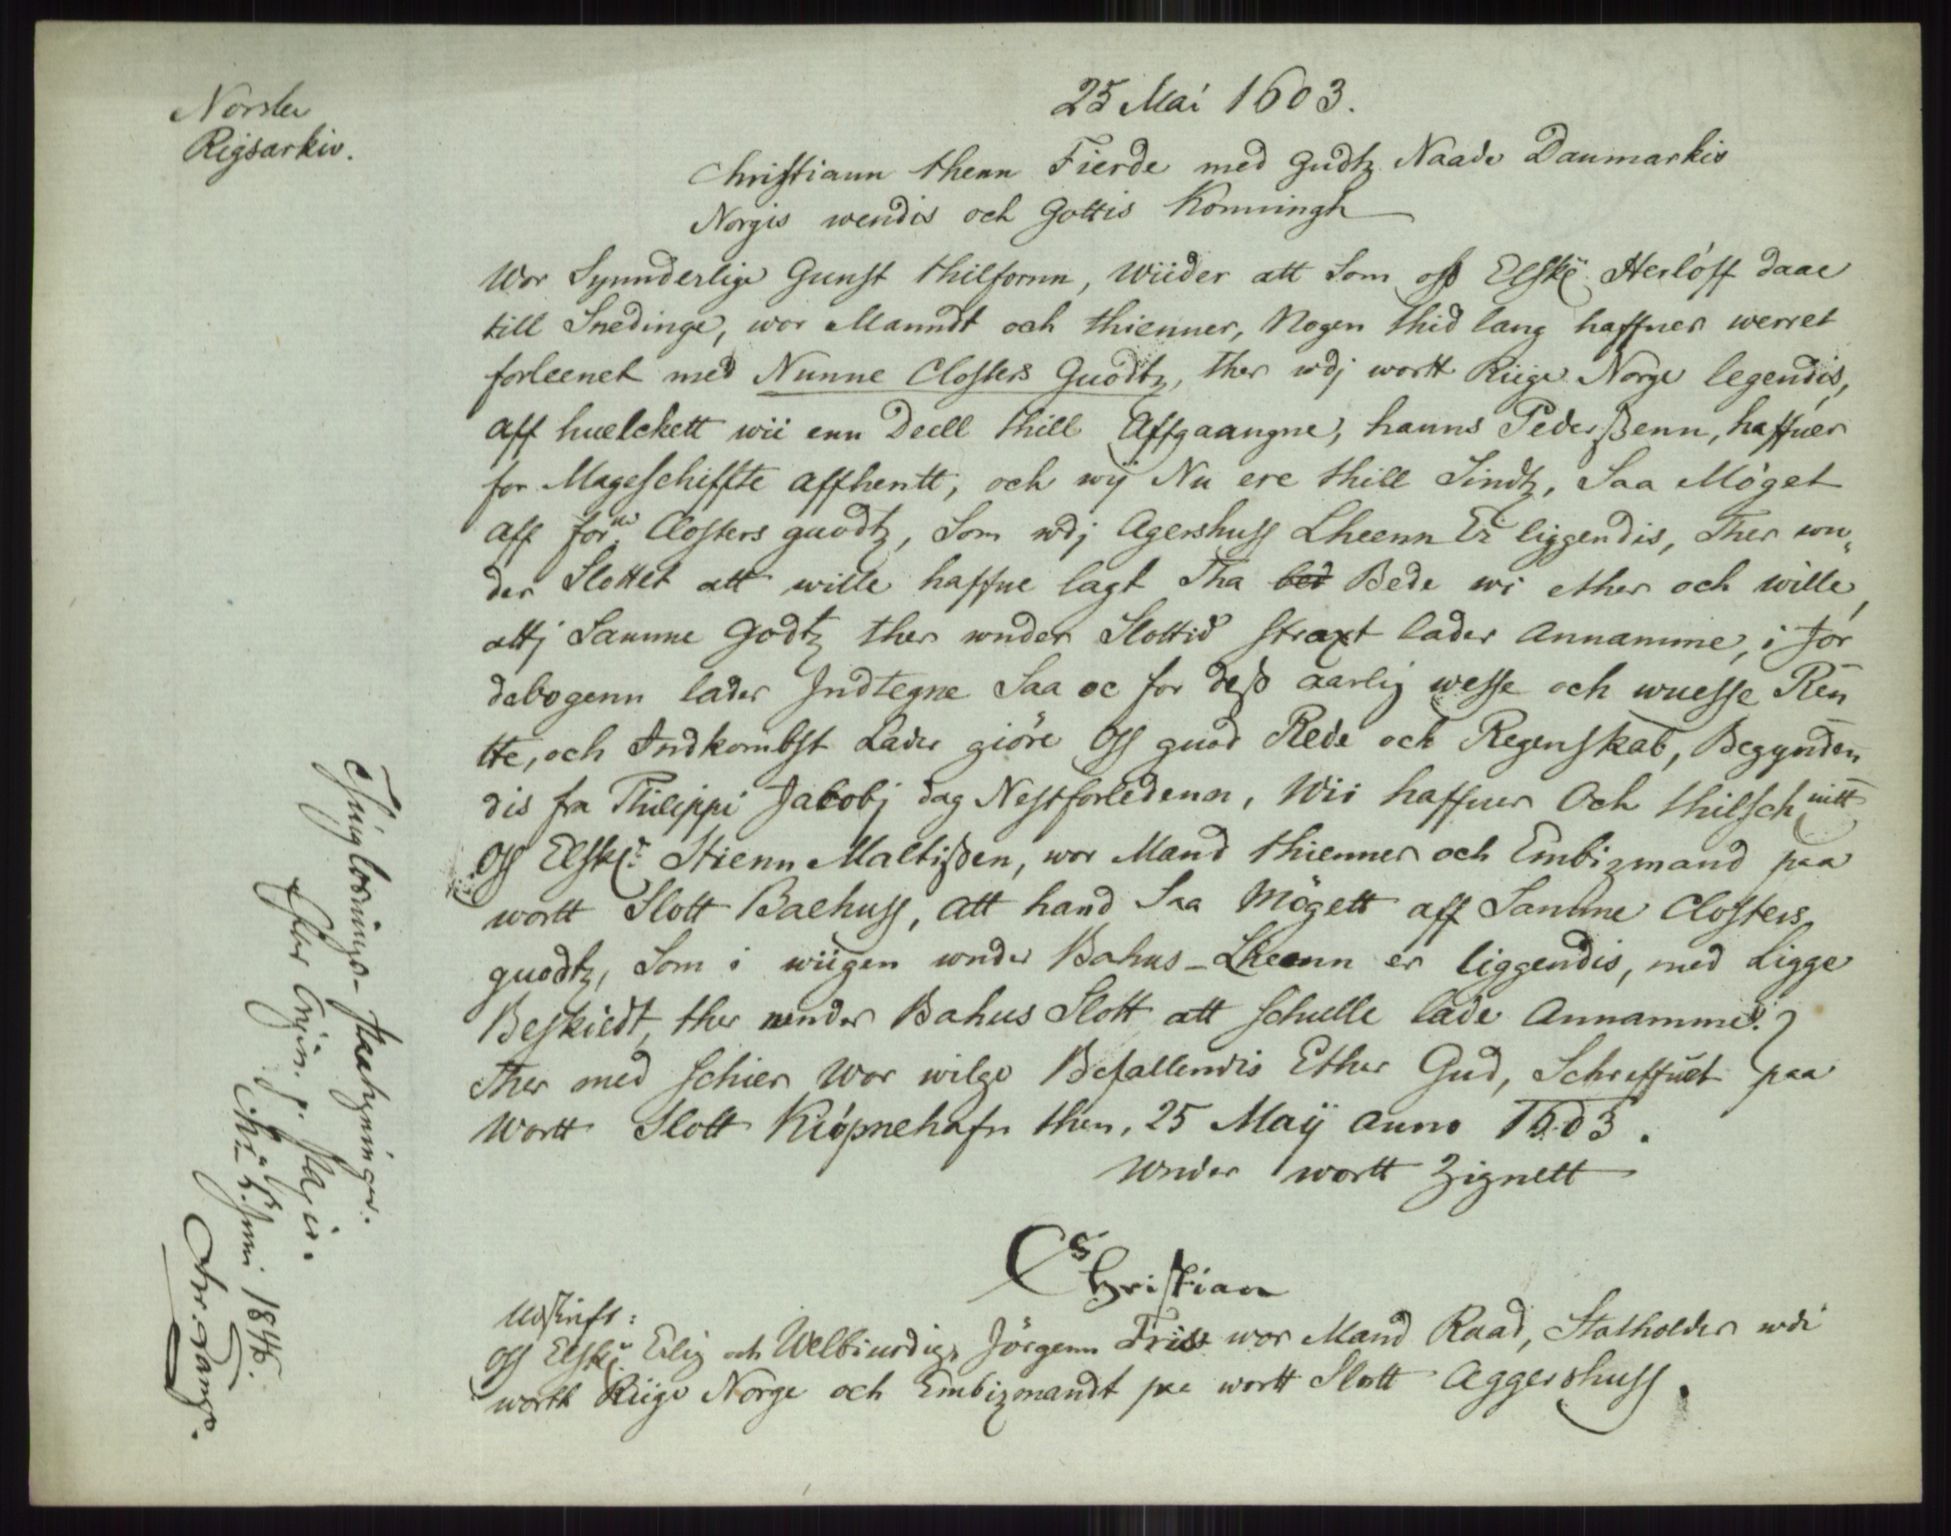 Norske
Rigsarkiv.
25 Mai 1603.
Christiann thenn Fierde med Gudtz Naade Danmarkis
Norgis wendis och Gottis Konningh
Wor Synnderlige Gunst thilfornn, Wiider att Som oss Elske. Herlöff daae
till Snedinge, wor Manndt och thienner, Nogen thid lang haffuer werret
forleenet med Nunne Closters Guodtz, ther wdj wortt Riige Norge legendis,
aff huelckett wii enn Deell thill Affgaangne, hanns Pederssenn, haffuer
for Mageschiffte affhentt, och wij Nu ere thill Sindtz, Saa Møget
aff forne Closters guodtz, Som wdj Agershuss Lheenn Er liggendis, Ther wn„
der Slottet att wille haffue lagt Tha bed Bede wi ether och wille,
attj Samme Godtz ther wnder Slottid straxt lader Annamme, i Jor
debogenn lader Indtegne Saa oc for dess aarlig wesse och wuesse Ren
tte, och Indkombst Lader giöre Oss guod Rede och Regenskab, Begynden
dis fra Philippi Jacobj dag Nestforledenn, Wii haffuer Och thilschriutt
Oss Elske. Stienn Maltissen, wor Mand thienner och Embizmand paa
wortt Slott Baehuss, att hand Saa Mögett aff Samme Closters
guodtz, Som i wiigen wnder Bahus-Lheenn er liggendis, med Ligge
Beskiedt, ther wnder Bahus Slott att schulle lade Annamme?
Ther med schier Wor wilge Befallendis Ether Gud, Schreffuet paa
Wortt Slott Kiøpnehafn then, 25 Maij Anno 1603.
Wnder wortt Zignett
Christian
Udskrift:
Oss Elske. Erlig och Welbiurdige Jörgenn Friss wor Mand Raad, Statholder wdi
wortt Riige Norge och Embizmandt paa wortt Slott Aggershuss.
Thinglæsnings-
Efter Orig. p. Papir.
Chra 5 Juni 1846.
Chr. Lange.